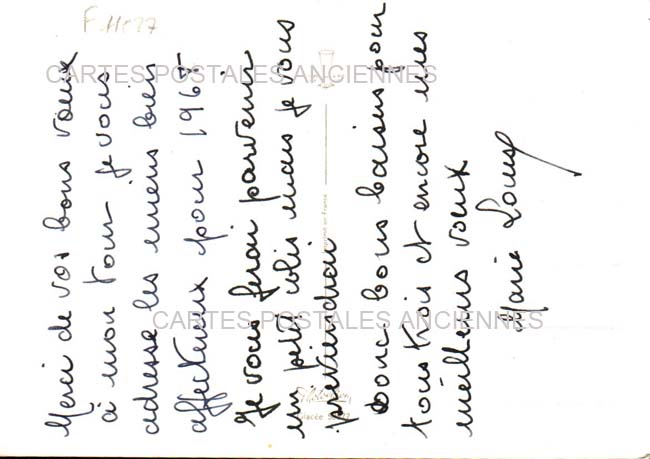 Merci de vos bons voeux
à mon tour je vous
adresse les miens bien
affectueux pour 1967
Je vous ferai parvenir
un petit colis mais je vous
préviendrai
Donc bons baisers pour
tous trois et encore mes
meilleurs voeux
Marie Louise
CARTES POSTALES ANCIENNES
CARTES POSTALES ANCIENNES